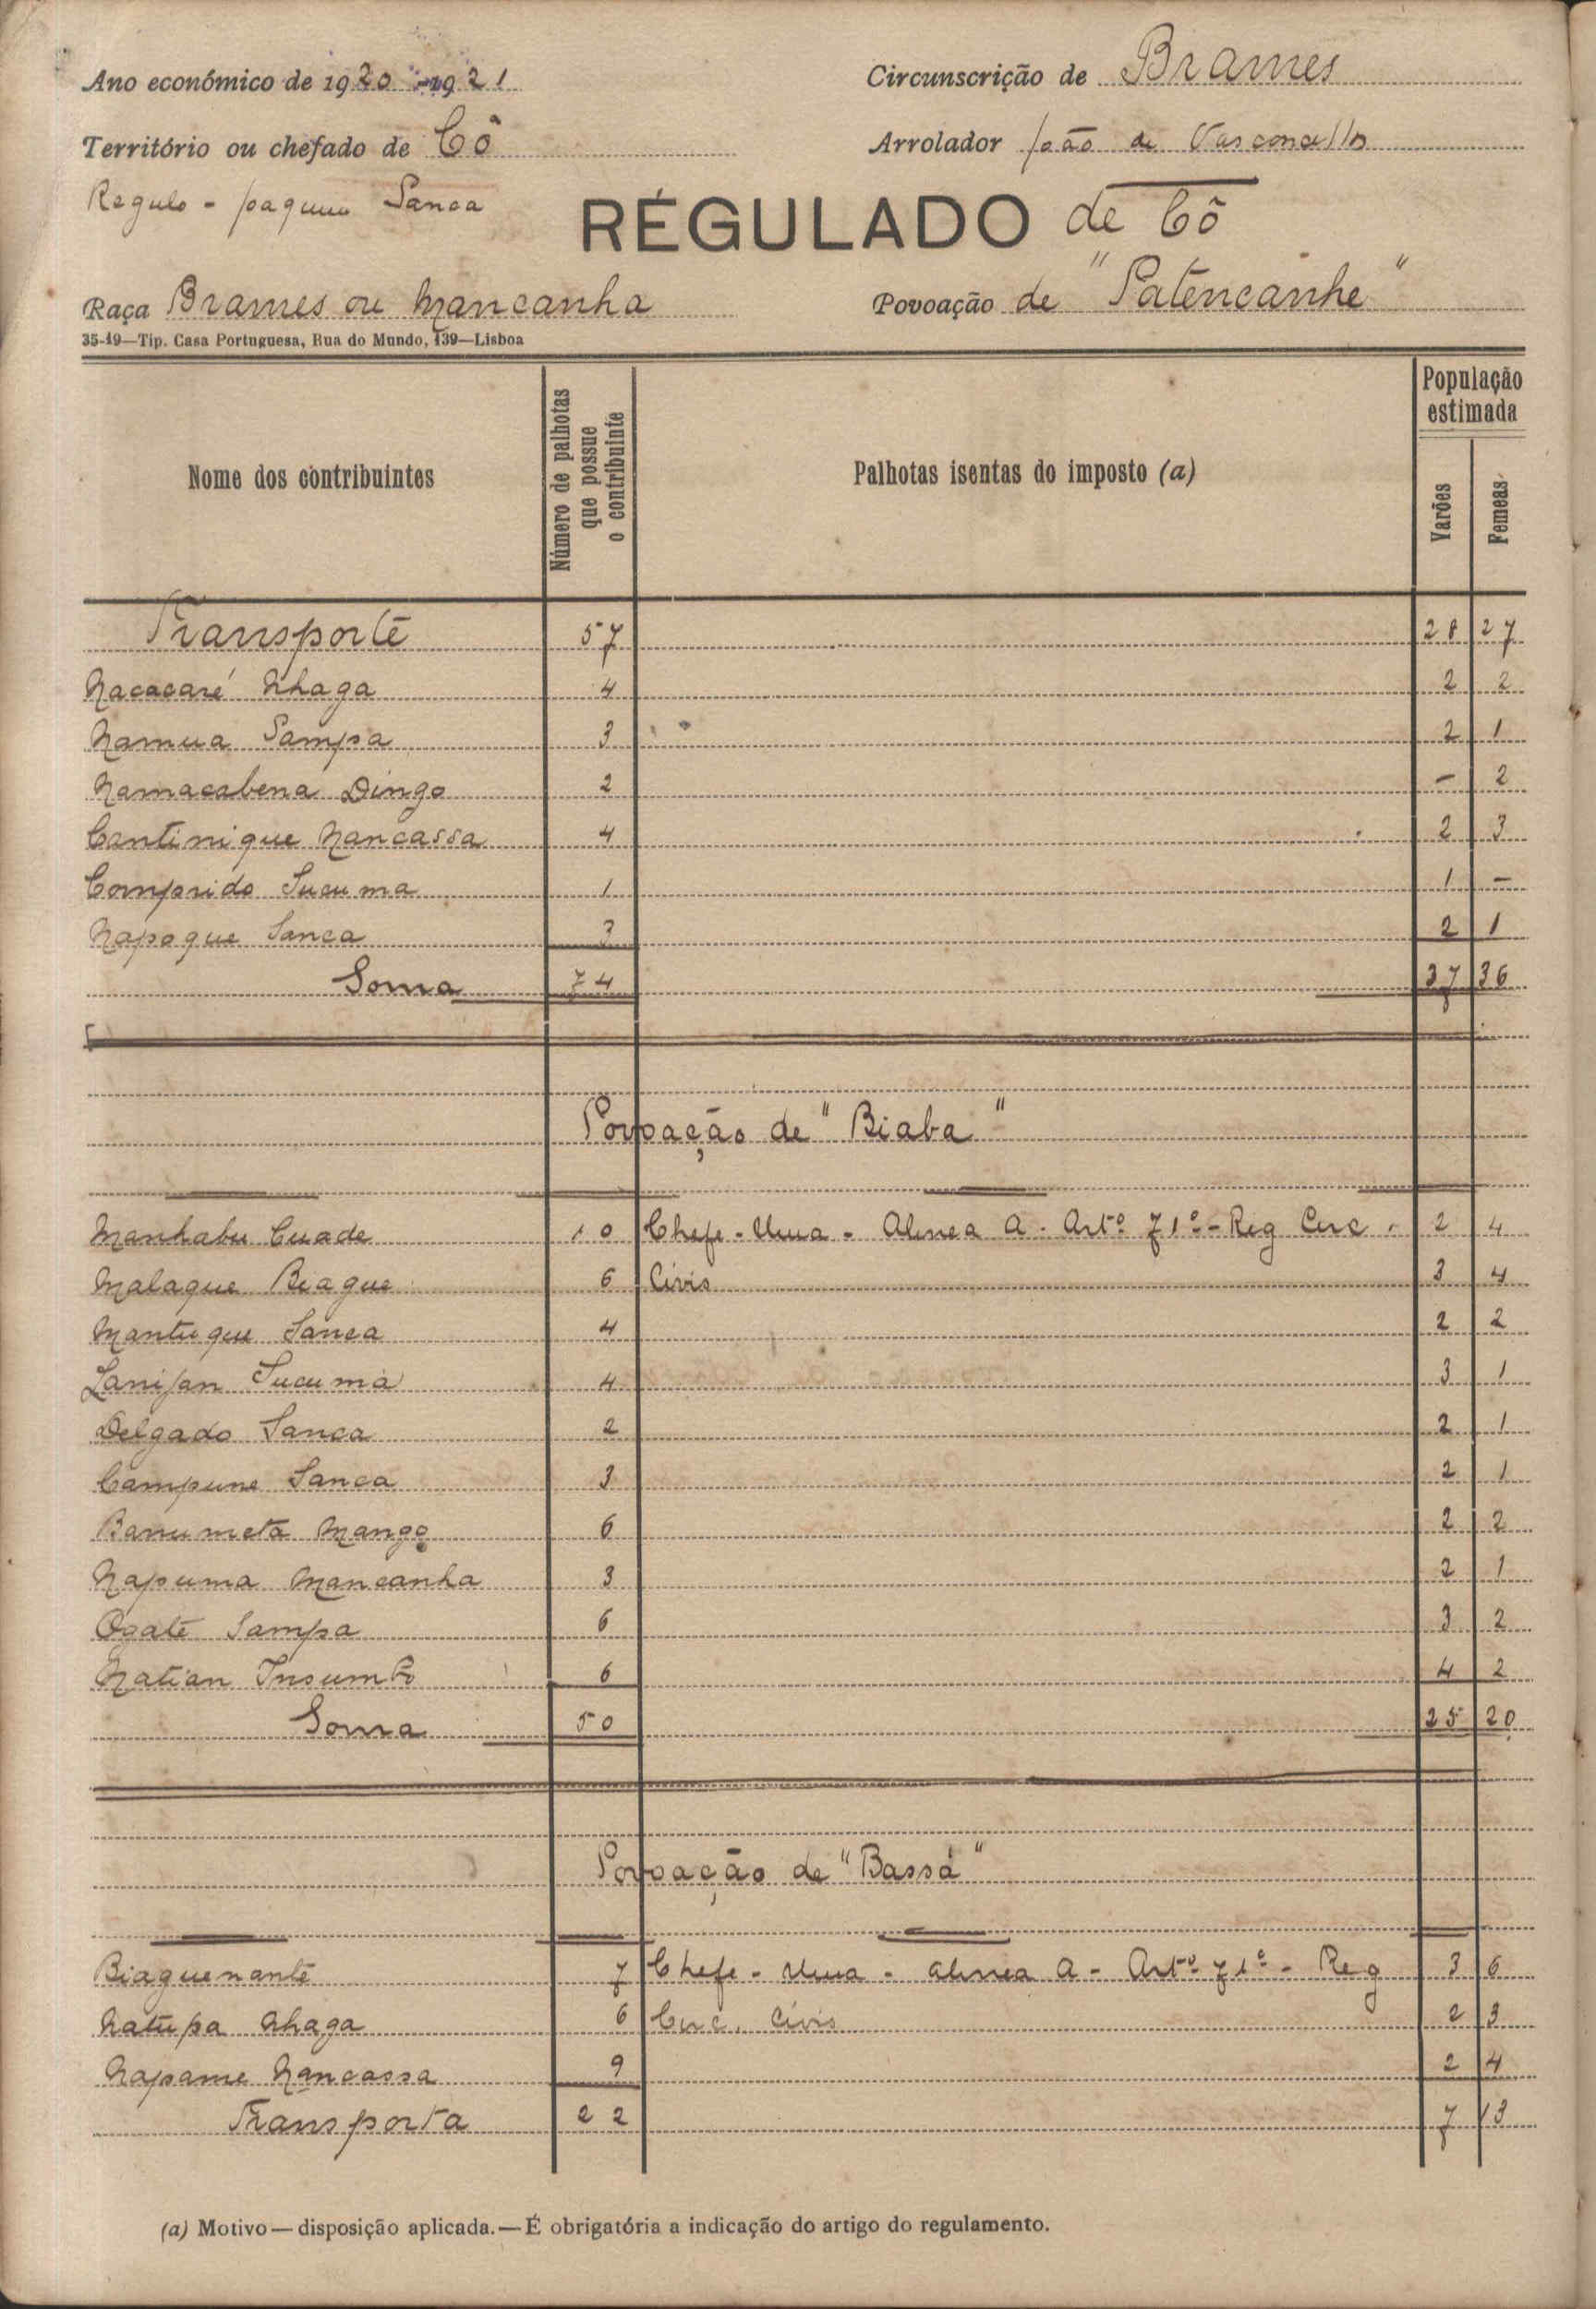 Ano económico de 1920-1921
Circunscrição de Brames
Território ou chefado de Cô
Arrolador João de Vasconcellos
Regulo - Sanca
RÉGULADO de Cô
Raça Brames ou Mancanha
Povoação de "Patencanhe"
35-19—Tip. Casa Portuguesa, Rua do Mundo, 139—Lisboa
Nome dos contribuintes
Número de palhotas que possue o contribuinte
Palhotas isentas do imposto (a)
População estimada
Varões
Femeas
Transporte 57 28 27
Nacacaré Nhaga 4 2 2
Namua Sampa 3 2 1
Namacabena Dingo 2 — 2
Cantinique Nancassa 4 2 3
Comprido Sucuma 1 1 —
Napoque Sanca 3 2 1
Soma 74 37 36
Povoação de "Biaba"
Manhabu Cuade 10 Chefe - Uma - Alinea A - Artº 71º - Reg Circ. 2 4
Malaque Biague 6 Civis 3 4
Mantuque Sanca 4 2 2
Sucuma 4 3 1
Delgado Sanca 2 2 1
Campune Sanca 3 2 1
Banumeta Mango 6 2 2
Napuma Mancanha 3 2 1
Ogate Sampa 6 3 2
Natian Insumbo 6 4 2
Soma 50 25 20
Povoação de "Bassá"
Biaguenante 7 Chefe - Uma - alinea A - Artº 71º - Reg 3 6
Natupa Nhaga 6 Circ. Civis 2 3
Napame Nancassa 9 2 4
Transporta 22 7 13
(a) Motivo—disposição aplicada.—É obrigatória a indicação do artigo do regulamento.